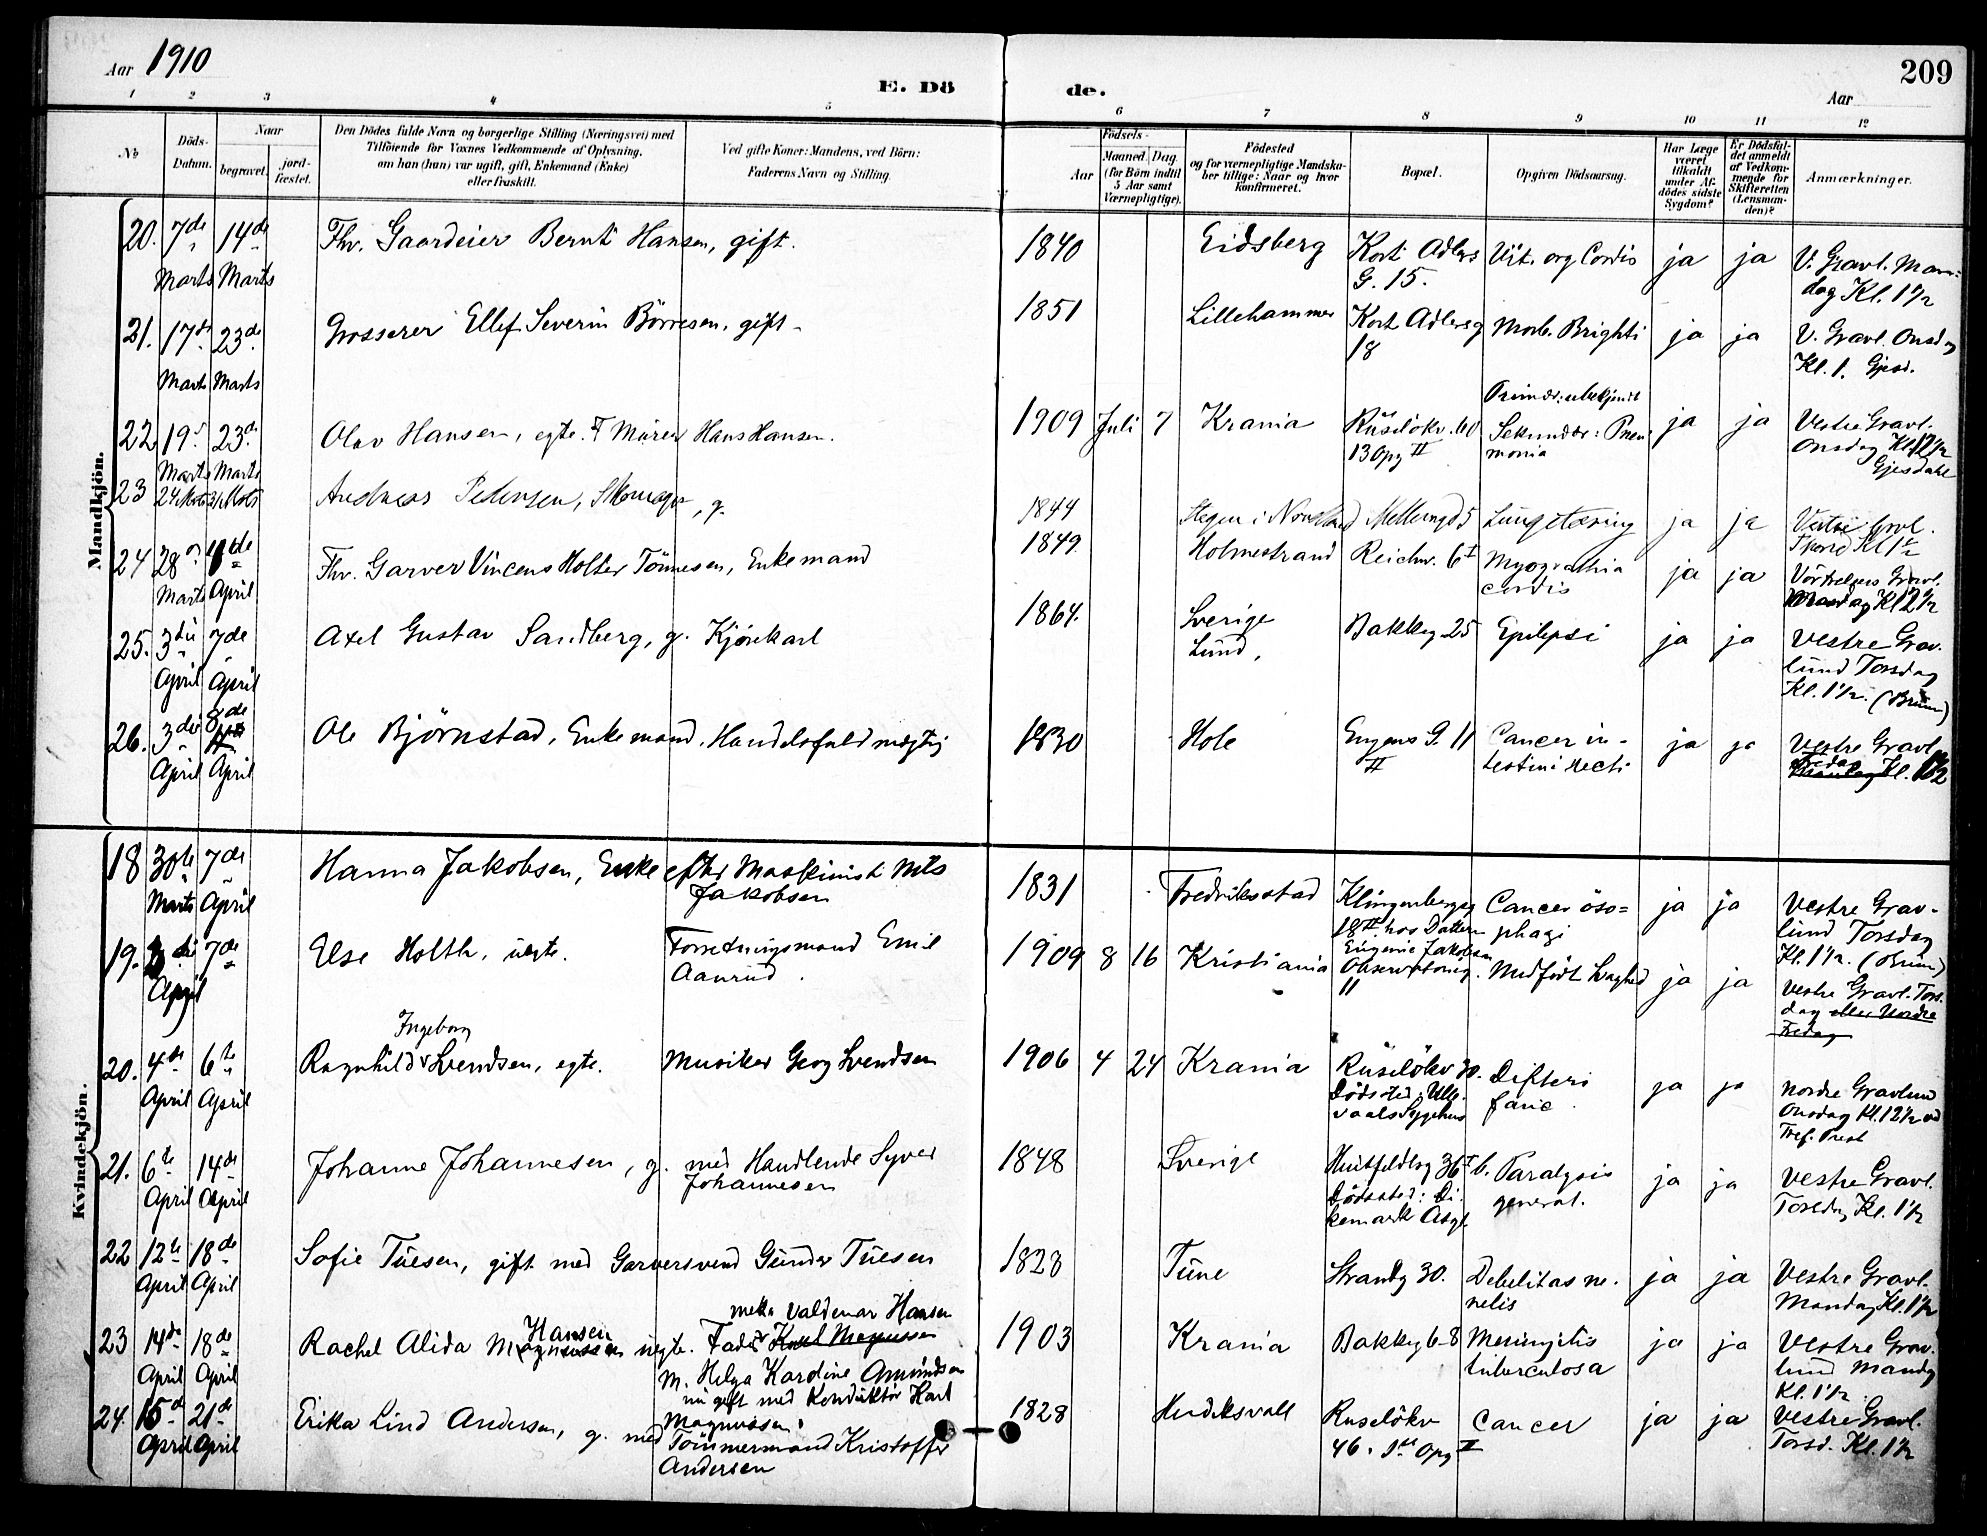 Aar 1910
E. Dö
de.
209
Aar
1 2 3 4 5 6 7 8 9 10 11 12
No
Döds-Datum.
Naar
begravet.
jord-fæstet.
Den Dödes fulde Navn og borgerlige Stilling (Næringsvei) med
Tilföiende for Voxnes Vedkommende af Oplysning,
om han (hun) var ugift, gift, Enkemand (Enke)
eller fraskilt.
Ved gifte Koner: Mandens, ved Börn:
Faderens Navn og Stilling.
Födsels-
Aar
Maaned. Dag.
(for Börn indtil
5 Aar samt
Værnepligtige).
Födested
og for værnepligtige Mandska-
ber tillige: Naar og hvor
konfirmeret.
Bopæl.
Opgiven Dödsaarsag.
Har Læge
været
tilkaldt
under Af-
dödes sidste
Sygdom?
Er Dödsfal-
det anmeldt
af Vedkom-
mende for
Skifteretten
(Lensman-
den)?
Anmærkninger.
Mandkjön.
20. 7de Marts 14de Marts Fhv. Gaardeier Bernt Hansen, gift. 1840 Eidsberg Kort Adlers G. 15. Vit. org Cordis ja ja V. Gravl. Mandag Kl. 1 1/2
21. 17de Marts 23de Marts Grosserer Ellef Severin Börresen, gift 1851 Lillehammer Kort Adlersg 18 Morb. Brighti ja ja V. Gravl. Onsdag Kl. 1. Gjesd.
22 19 Marts 23de Marts Olav Hansen, egte. F Murer Hans Hansen. 1909 Juli 7 Krania Rüselökv. 60 13 Opg II Primær: ubekjendt Sekundær: Pneumonia ja ja Vestre Gravl. Onsdag Kl 12 1/2 Gjesdahl
23 24 Marts 31 Marts Andreas Pedersen, Skomager, g. 1844 Stegen i Nordland Mellemgd 5 Lungetæring ja ja Vestre Gravl. Kl 1 1/2
24 28 Marts April Fhv. Garver Vincens Holter Tönnesen, Enkemand 1849. Holmestrand Reichw. 6 I Myopathia cordis ja ja Vor Frelsers Gravl. Mandag Kl 12 1/2
25. 3die April 7de April Axel Gustav Sandberg, g. Kjörekarl 1864. Sverige Lund, Bakkeg 25 Epilepsi ja ja Vestre Gravlund Torsdag Kl. 1 1/2. (Bruun)
26. 3die April 8de April Ole Björnstad, Enkemand, Handelsfuldmægtig 1830 Hole Eugens G. 11 II Cancer intestini recti ja ja Vestre Gravl Fredag Kl. 1 1/2
Kvindekjön.
18 30te Marts 7de April Hanna Jakobsen, Enke efter Maskinist Nils Jakobsen 1831 Fredriksstad Klingenbergg 18 II hos Datteren Eugenie Jakobsen Cancer ösophagi ja ja Vestre Gravlund Torsdag Kl. 1 1/2. (Bruun)
19. April 7de Else Holth, uegte. Forretningsmand Emil Aanrud. 1909 8 16 Kristiania Observatorieg. 11 Medfödt Svaghed ja ja Vestre Gravl. Torsdag eller Nordre Fredag
20. 4de April 6te April Ragnhild Ingeborg Svendsen, egte. Musiker Georg Svendsen 1906 4 24 Krania Rüselökv 30. Dödssted: Ullevaals Sygehus Difteri ja ja Nordre Gravlund Onsdag Kl. 12 1/2 ved Tref. Prest
21. 6te April 14de April Johanne Johannesen, g. med Handlende Syver Johannesen 1848 Sverige Huitfeldtsg 36 I b. Dödssted: Dikemark Asyl Paralysis general. ja ja Vestre Gravl. Torsdag Kl. 1 1/2
22 12te April 18de April Sofie Tuesen, gift med Garversvend Gunder Tuesen 1823 Tune Strandg 30. Debilitas senilis ja ja Vestre Gravl. Mandag Kl. 1 1/2
23 14de April 18de April Rachel Alida Magnussen Hansen uegte. Fader Karl Magnussen Valdemar Hansen M. Helga Kardine Amundsen nu gift med Konduktör Karl Magnussen 1903 Krania Bakkeg 6-8 Meningitis tuberculosa ja ja Vestre Gravlund Mandag Kl. 1 1/2.
24. 15de April 21de April Erika Lind Andersen, g. med Tömmermand Kristoffer Andersen 1828 Hudiksvall Ruselökv 46. 1ste Opg II Cancer ja ja Vestre Gravl. Torsd. Kl. 1 1/2